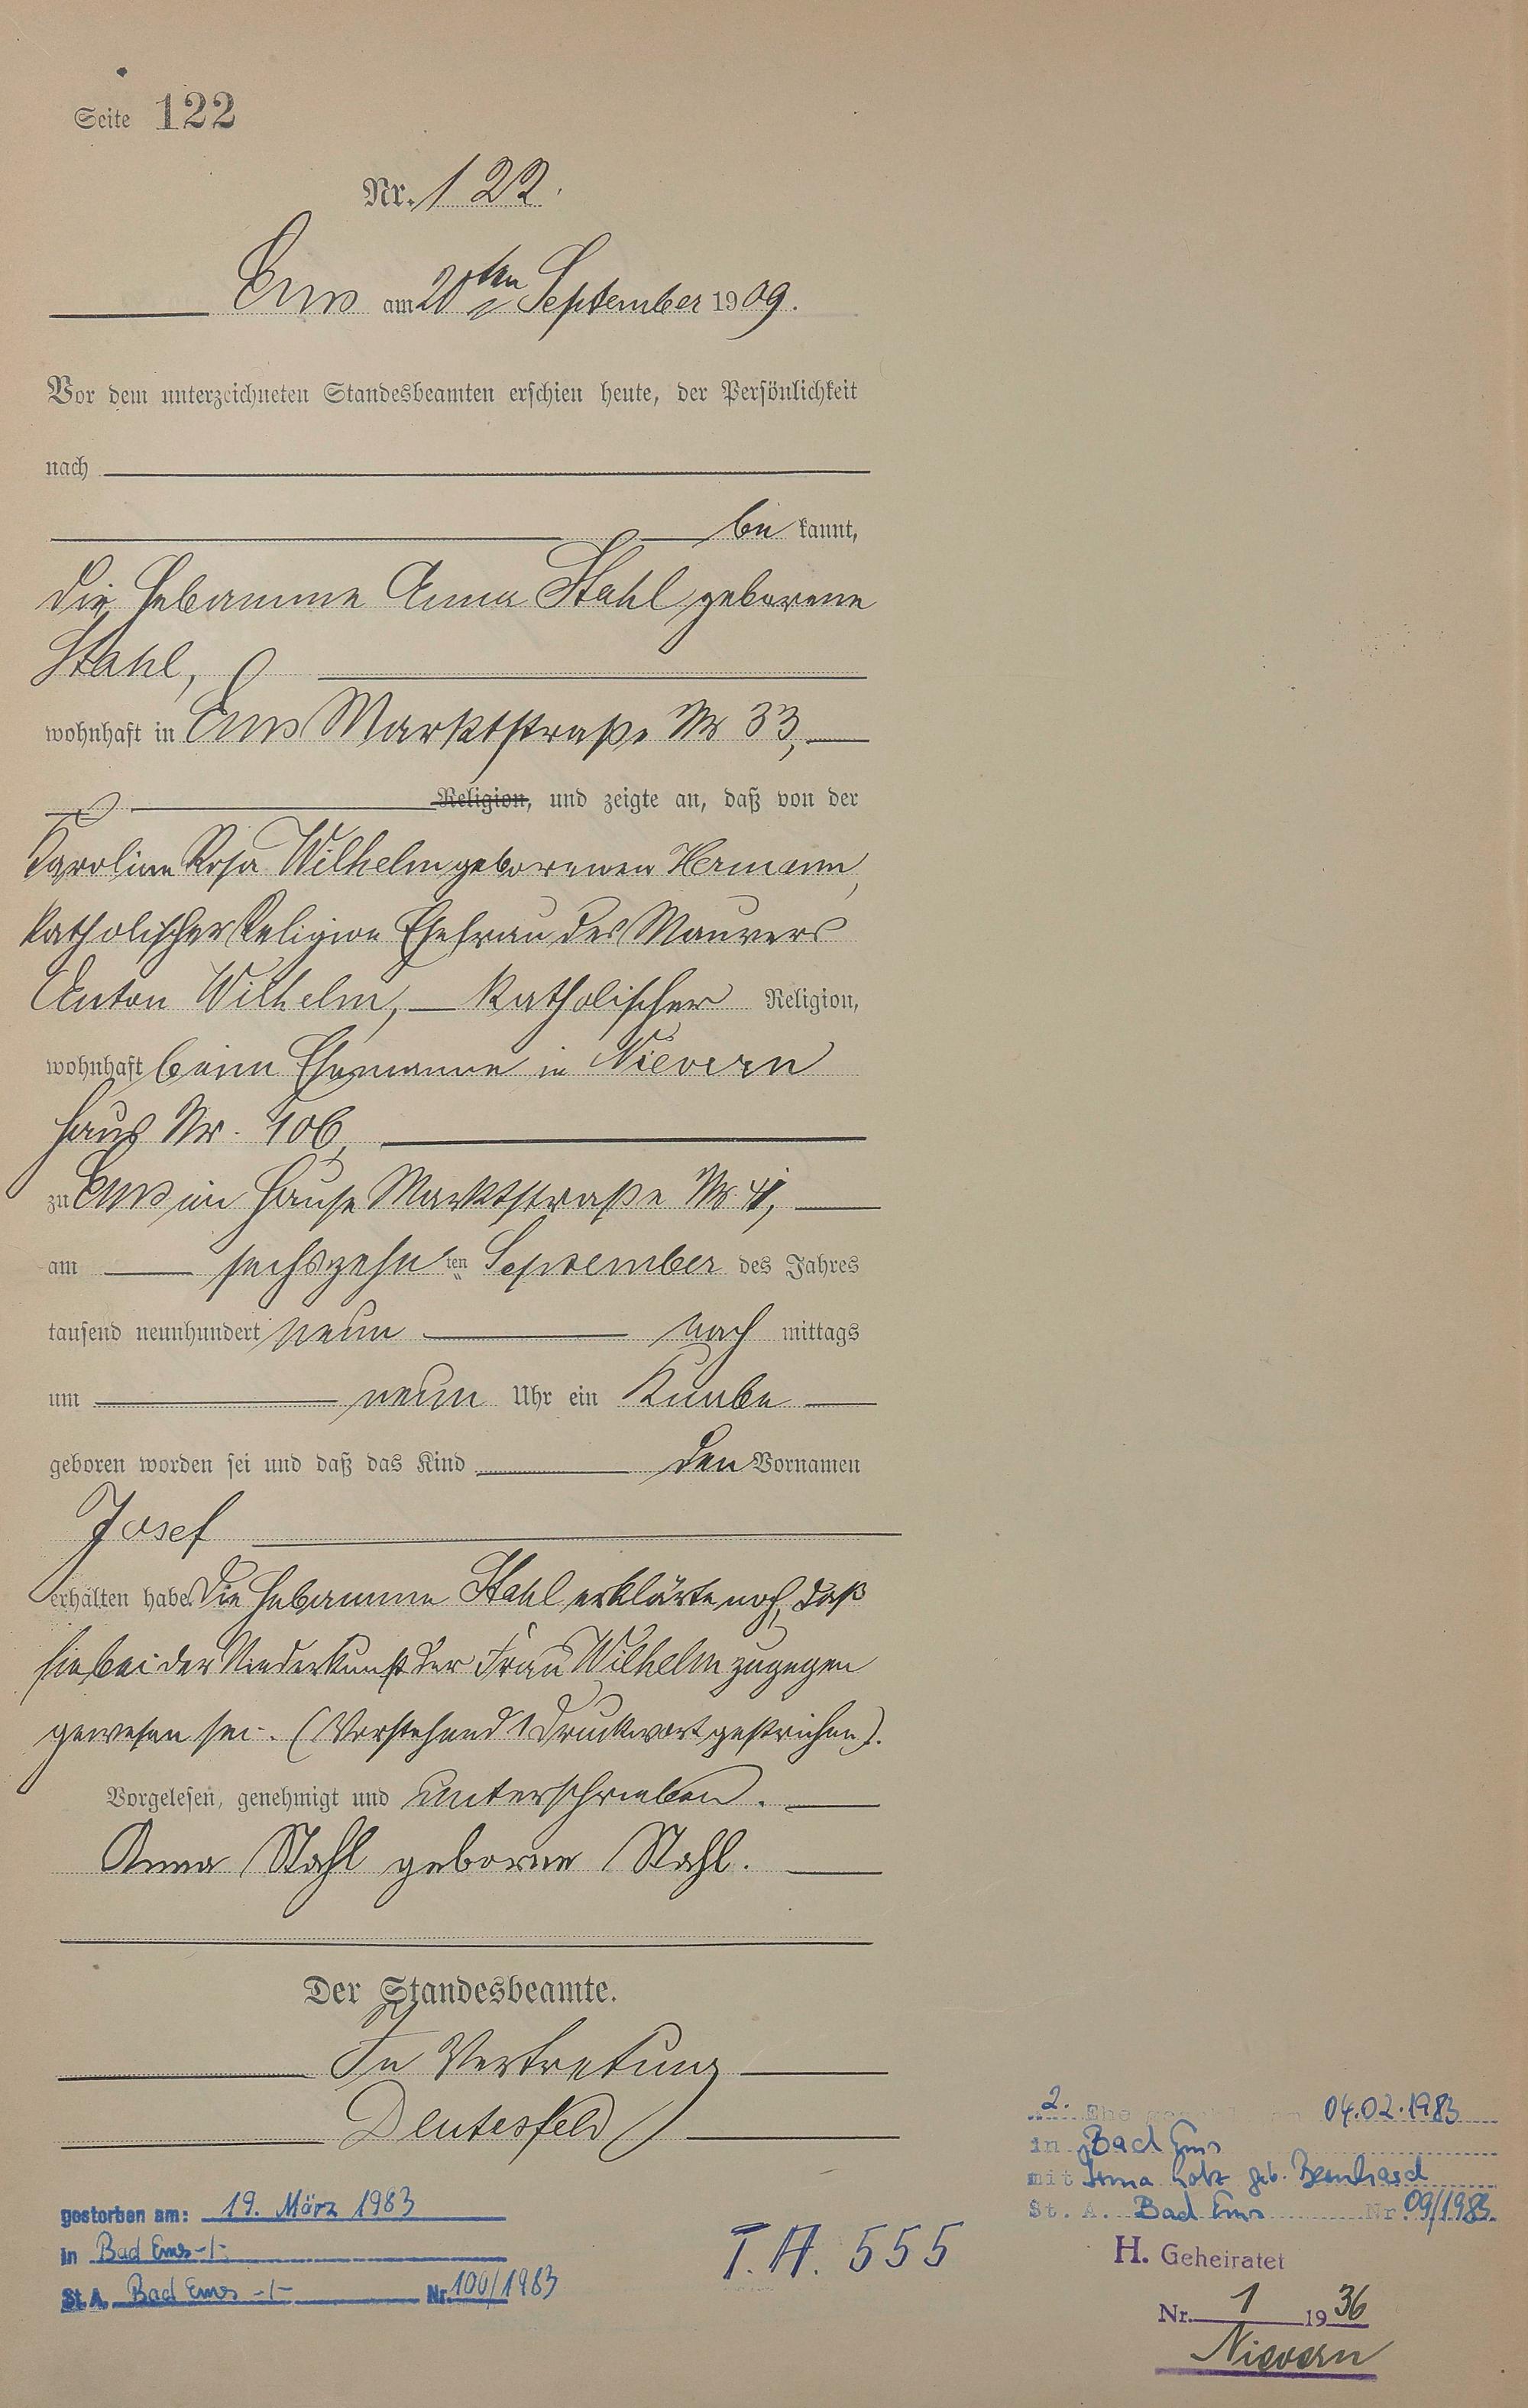 Seite 122
Nr. 122.
Ems am 20ten September 1909.
Vor dem unterzeichneten Standesbeamten erschien heute, der Persönlichkeit
nach
be kannt,
die Hebamme Anna Stahl geborene
Stahl,
wohnhaft in Ems Marktstraße Nr 33,
Religion, und zeigte an, daß von der
Karoline Rosa Wilhelm geborenen Hermann,
katholischer Religion Ehefrau des Maurers
Anton Wilhelm, katholischer Religion,
wohnhaft beim Ehemanne in Nievern
Haus Nr. 106,
zu Ems im Hause Marktstraße Nr.
am sechszehnten September des Jahres
tausend neunhundert neun nach mittags
um neun Uhr ein Knabe
geboren worden sei und daß das Kind den Vornamen
Josef
erhalten habe. Die Hebamme Stahl erklärte noch, daß
sie bei der Niederkunft der Frau Wilhelm zugegen
gewesen sei. (Vorstehend 1 Druckwort gestrichen).
Vorgelesen, genehmigt und unterschrieben.
Anna Stahl geborene Stahl.
Der Standesbeamte.
In Vertretung
Deutesfeld
gestorben am: 19. März 1983
in Bad Ems -/-
St.A. Bad Ems -/- Nr. 100/1983
T.A. 555
2. Ehe 04.02.1983
in Bad Ems
mit Irma geb. Bernhard
St. A. Bad Ems Nr 09/1983.
H. Geheiratet
Nr. 1 1936
Nievern